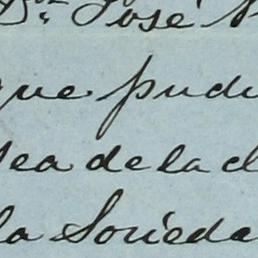 Dn. José
que pudi
sea de la cl
la Socieda